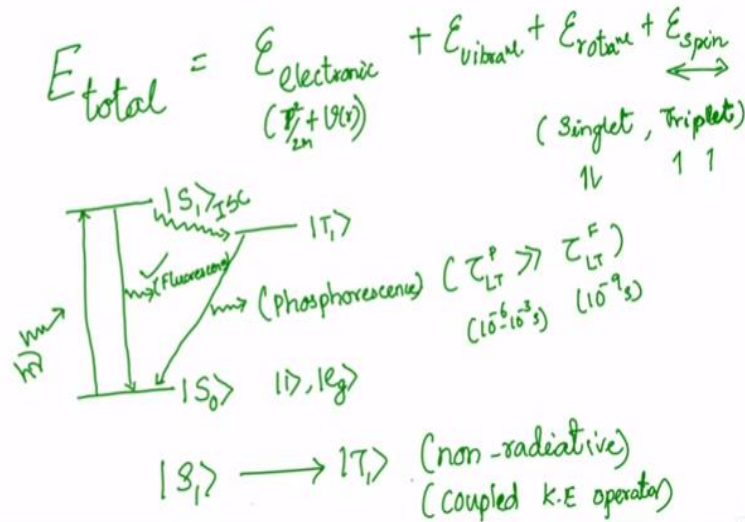 E_total = Ɛ_electronic + Ɛ_vibraⁿᵃˡ + Ɛ_rotaⁿᵃˡ + Ɛ_spin
(P²/2m + V(r))
(Singlet, Triplet)
1⇂ 1 1
|S₁⟩ ISC
|T₁⟩
✓
(Fluorescence)
(Phosphorescence) (τ_LT^P ≫ τ_LT^F)
(10⁻⁶-10⁻³s) (10⁻⁹s)
hν
|S₀⟩ |1⟩, |e_g⟩
|S₁⟩ ⟶ |T₁⟩ (non-radiative)
(coupled K.E operator)